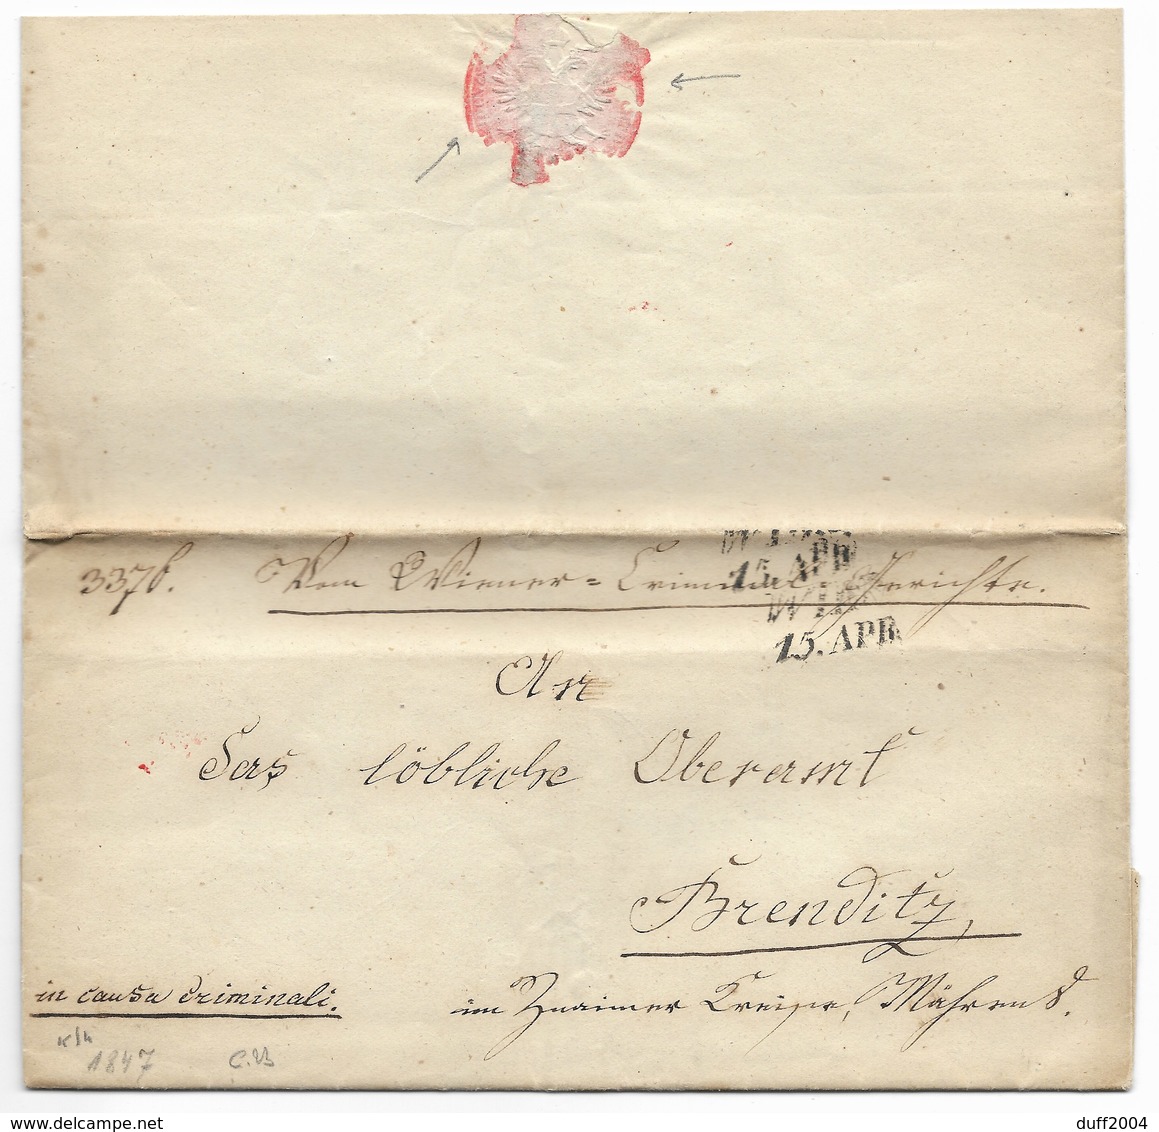 3376. Vom Wiener-Criminal-Gerichte.
WIEN
15. APR
WIEN
15. APR.
An
Das löbliche Oberamt
Brenditz,
in causa criminali.
im Znaimer Kreise, Mährens.
1847
www.delcampe.net
duff2004